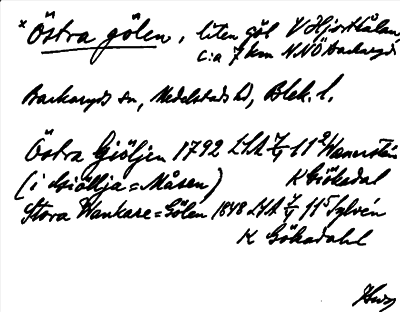 * Östra gölen, liten göl V Hjorthålan
c:a 7 km NNÖ Backaryds
Backaryds sn, Medelstads hd, Blek. l.
Östra Giöljen 1792 LSA 11 Wannerstén
(i dsiöllja = Måsen) K Giökadal
Stora Wankare=Gölen 1848 LSA 11 Sylvén
K Gökadahl